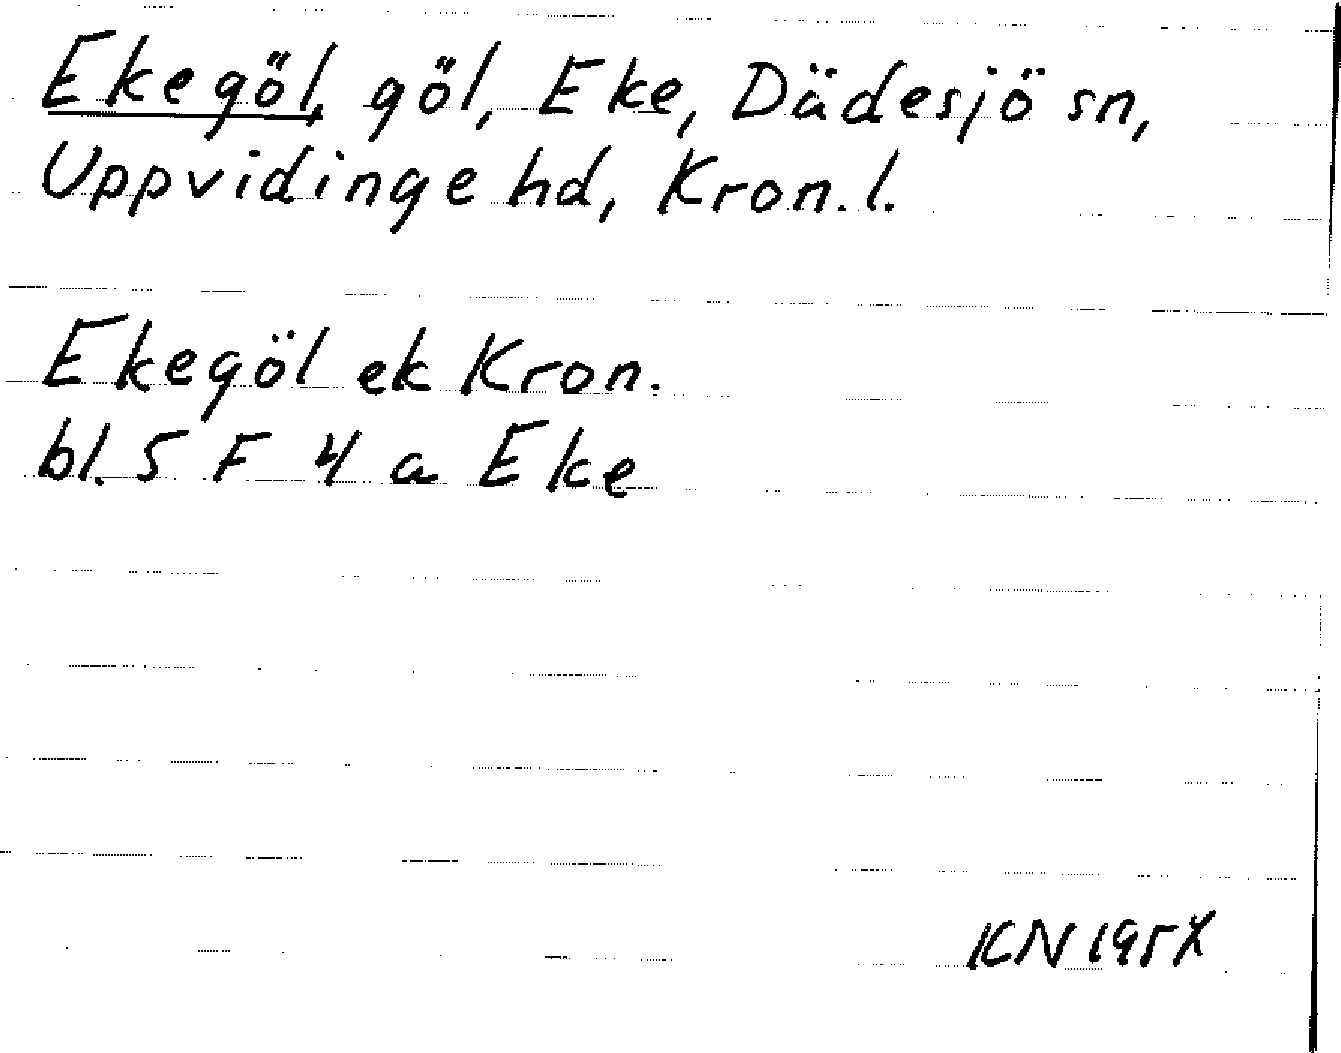 Ekegöl, göl, Eke, Dädesjö sn,
Uppvidinge hd, Kron. l.
Ekegöl ek Kron.
bl. 5 F 4 a Eke
KN